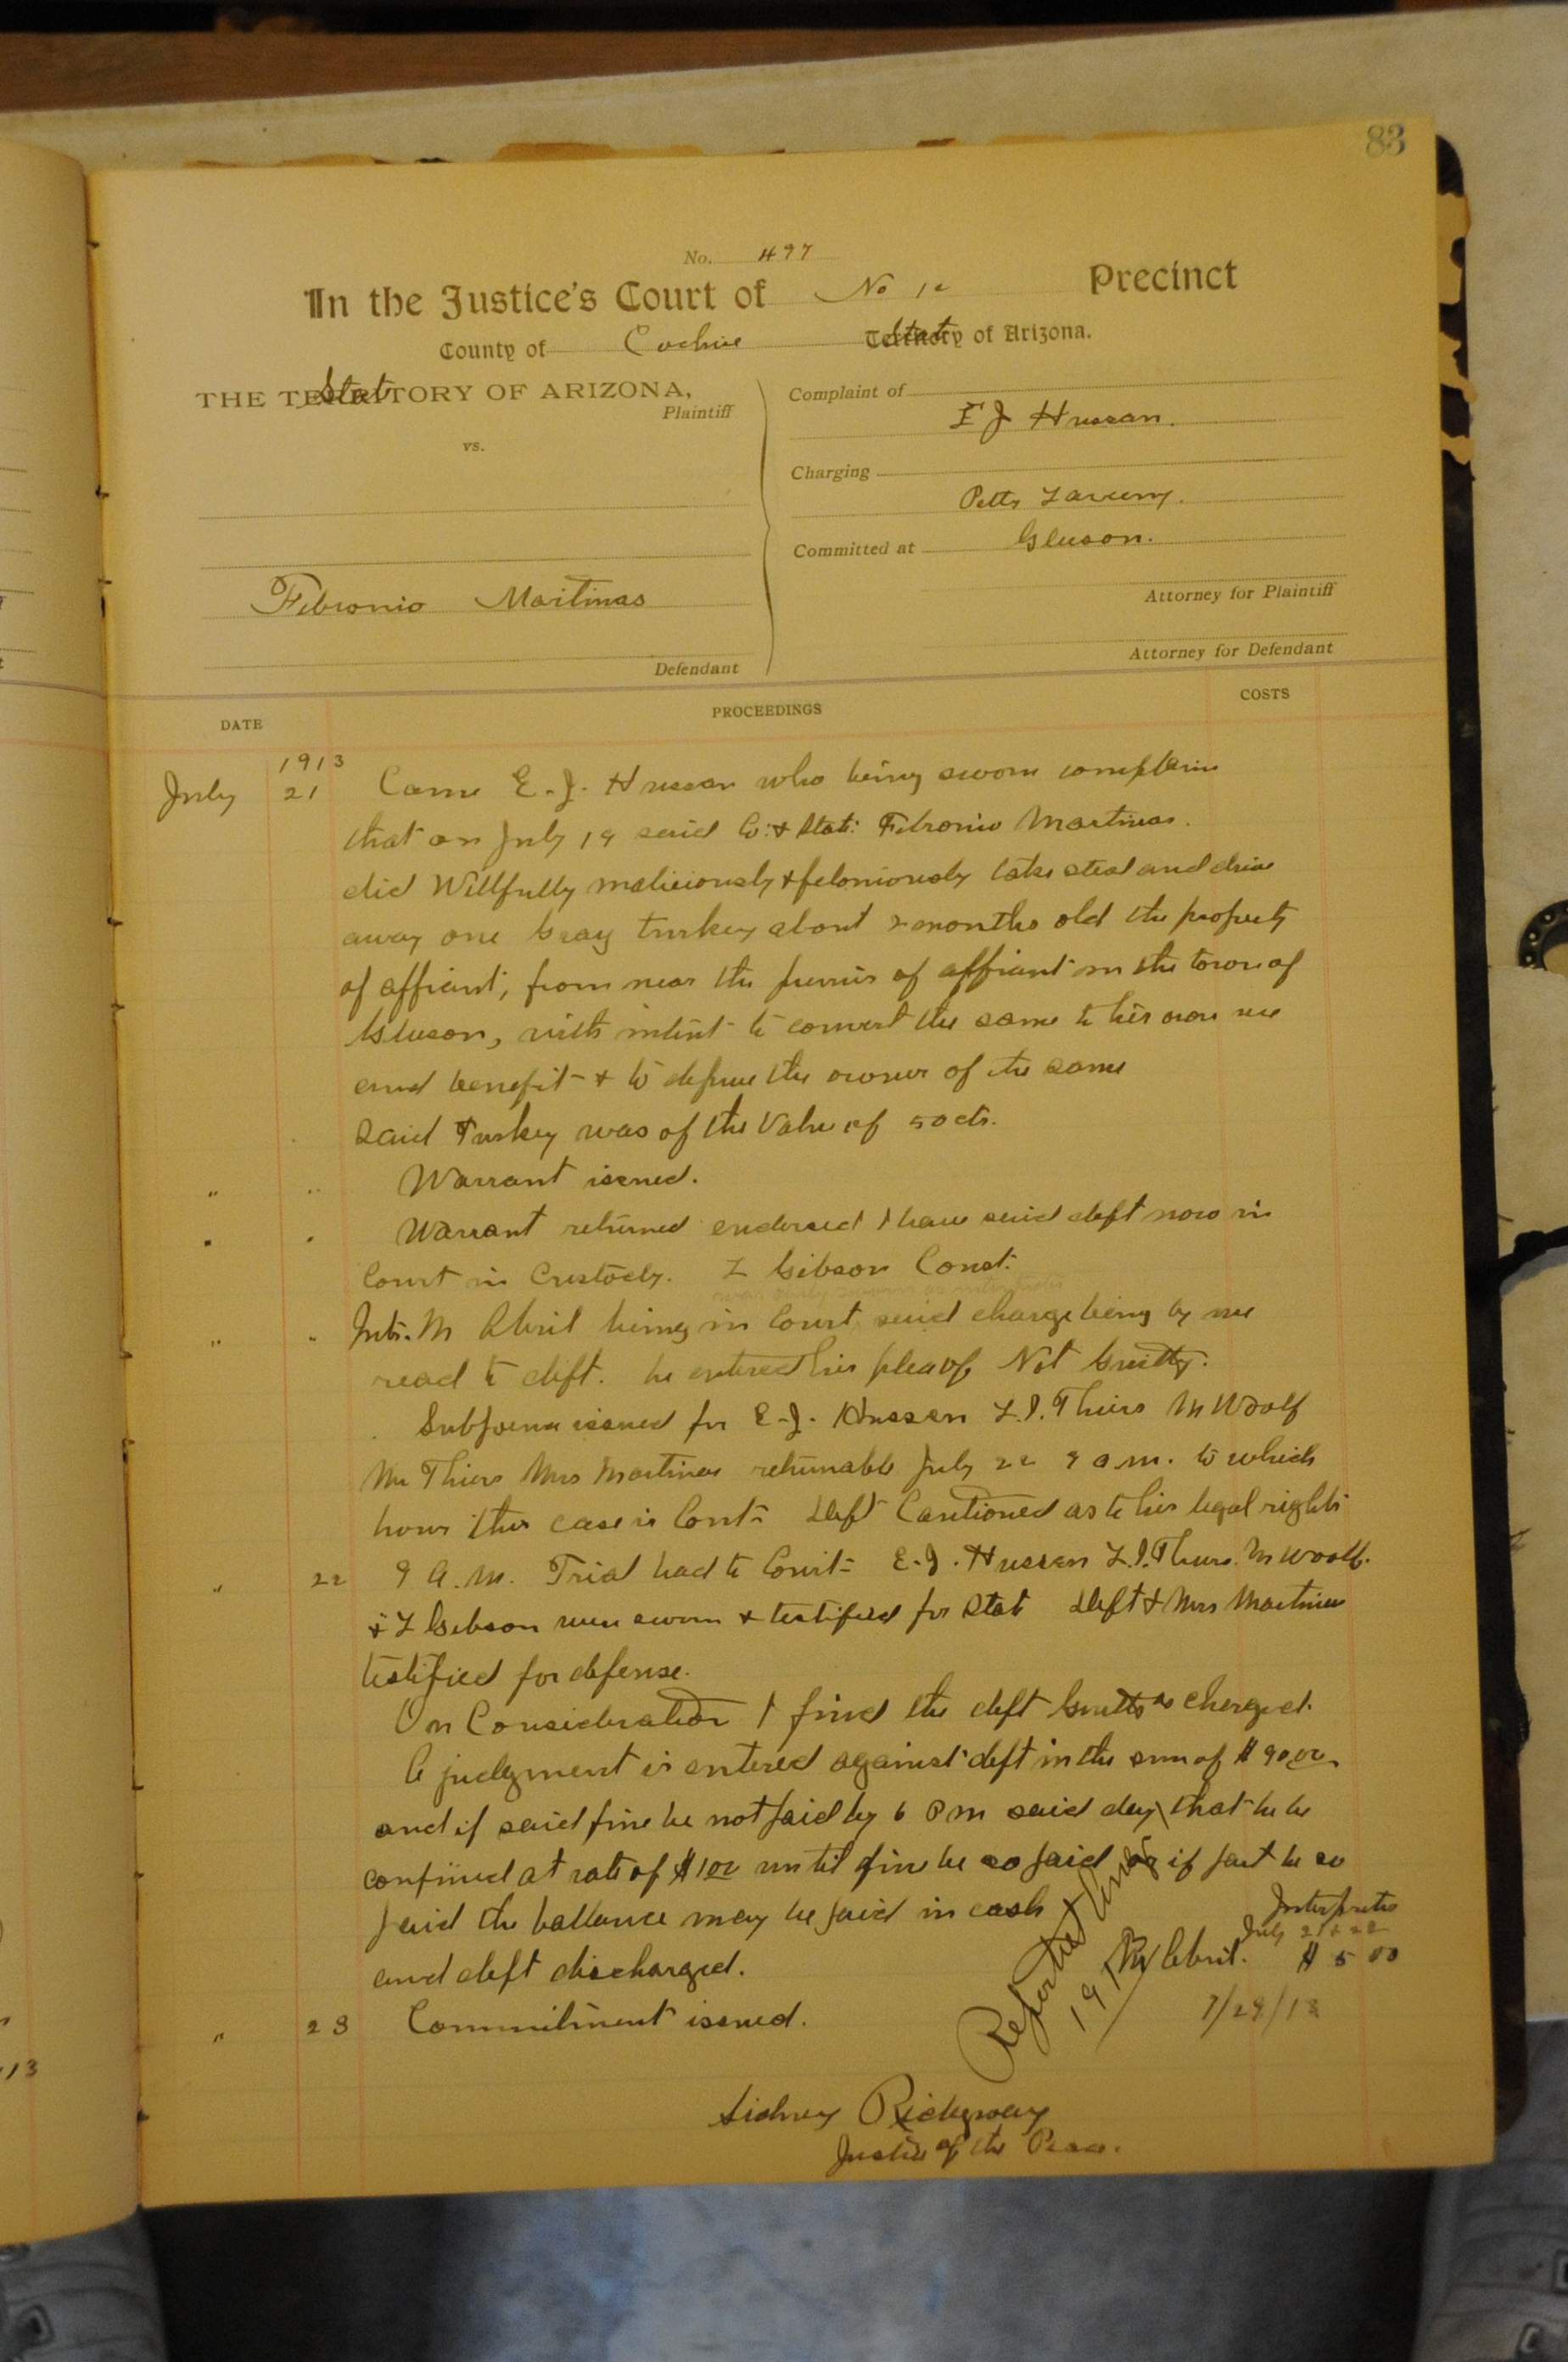 83
No. 497
In the Justice's Court of No 12 Precinct
County of Cochise State of Arizona.
THE State OF ARIZONA,
Plaintiff
vs.
Febronio Martinas
Defendant
Complaint of
E J Hussan.
Charging
Petty Larceny.
Committed at Gleeson.
Attorney for Plaintiff
Attorney for Defendant
DATE PROCEEDINGS COSTS
1913
July 21 Came E. J. Hussan who being sworn complains
that on July 19 said Co. & State Febronio Martinas.
did Willfully maliciously & feloniously take steal and drive
away one Gray turkey about 2 months old the property
of affiant, from near the premis of affiant in the town of
Gleeson, with intent to convert the same to his own use
and benefit & to deprive the owner of the same
Said Turkey was of the Value of 50 cts.
" " Warrant issued.
" " Warrant returned endorsed I have said deft now in
Court in Custody. L Gibson Const.
was duly sworn as interpreter
" " Intr. M Abril being in Court said charge being by me
read to deft. he entered his plea of Not Guilty.
Subpoena issued for E. J. Hussan L. J. Thiers M Woolf
Mrs Thiers Mrs Martinas returnable July 22 9 a m. to which
hour this case is Cont. Deft Cautioned as to his legal rights
" 22 9 A. M. Trial had to Court. E. J. Hussan L. J. Thiers. M Woolf.
& L Gibson were sworn & testified for State Deft & Mrs Martinas
testified for defense.
On Consideration I find the deft Guilty as charged.
A judgment is entered against deft in the sum of $ 90.00
and if said fine be not paid by 6 P m said day that he be
confined at rate of $1.00 until fine be so paid or if part be so
paid the ballance may be paid in cash
and deft discharged.
Interpreter
July 21 & 22
M Abril. $ 5 00
7/29/13
" 23 Commitment issued.
Sidney Ridgway
Justice of the Peace.